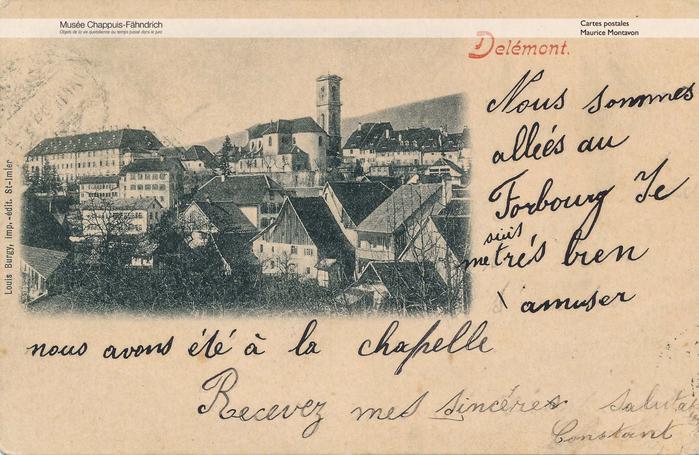 Musée Chappuis-Fähndrich
Objets de la vie quotidienne du temps passé dans le Jura
Cartes postales
Maurice Montavon
Delémont.
Louis Burgy, imp.-édit. St-Imier
Nous sommes
alleés au
Forbourg Je
suis
me trés bien
amuser
nous avons été à la chapelle
Recevez mes sincéres salutat
Constant